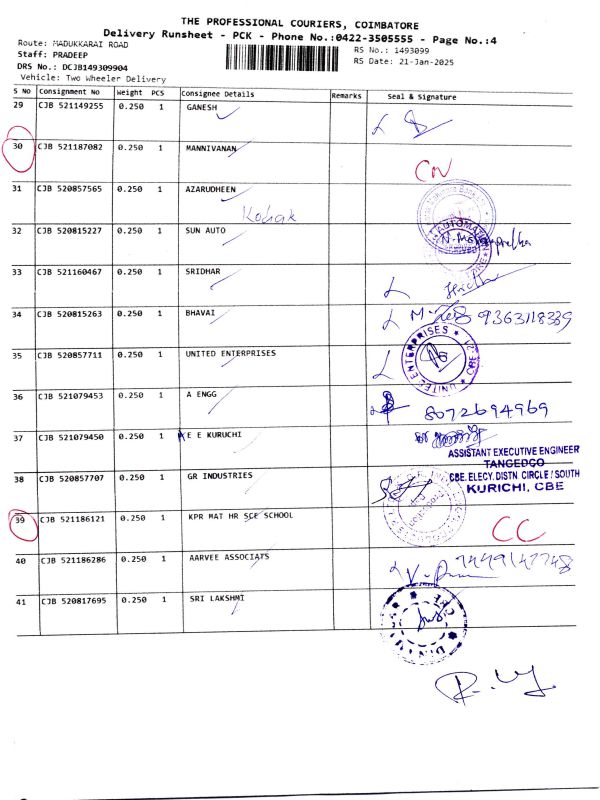 THE PROFESSIONAL COURIERS, COIMBATORE
Delivery Runsheet - PCK - Phone No.:0422-3505555 - Page No.:4
Route: MADUKKARAI ROAD
RS No.: 1493099
Staff: PRADEEP
RS Date: 21-Jan-2025
DRS No.: DCJB149309904
Vehicle: Two Wheeler Delivery
S No Consignment No Weight PCS Consignee Details Remarks Seal & Signature
29 CJB 521149255 0.250 1 GANESH
30 CJB 521187082 0.250 1 MANNIVANAN
CN
31 CJB 520857565 0.250 1 AZARUDHEEN
Kohak
32 CJB 520815227 0.250 1 SUN AUTO
33 CJB 521160467 0.250 1 SRIDHAR
34 CJB 520815263 0.250 1 BHAVAI
9363118339
35 CJB 520857711 0.250 1 UNITED ENTERPRISES
UNITED ENTERPRISES CBE
36 CJB 521079453 0.250 1 A ENGG
8072694969
37 CJB 521079450 0.250 1 AE E KURUCHI
ASSISTANT EXECUTIVE ENGINEER
TANGEDCO
CBE. ELECY. DISTN CIRCLE / SOUTH
KURICHI, CBE
38 CJB 520857707 0.250 1 GR INDUSTRIES
39 CJB 521186121 0.250 1 KPR MAT HR SCE SCHOOL
CC
40 CJB 521186286 0.250 1 AARVEE ASSOCIATS
7449147748
41 CJB 520817695 0.250 1 SRI LAKSHMI